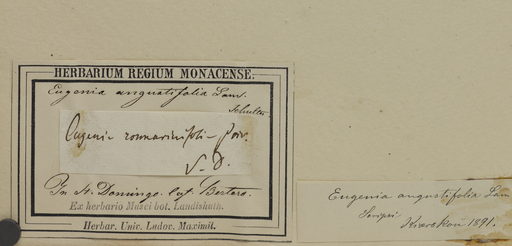 HERBARIUM REGIUM MONACENSE.
Eugenia angustifolia Lam.
Schultes.
Eugenia rosmarinifoli- Poir.
S. D.
In St. Domingo. leg. Bertero.
Ex herbario Musei bot. Landishuth.
Herbar. Univ. Ludov. Maximil.
Eugenia angustifolia Lam
Scripsi Kiaerskou 1891.